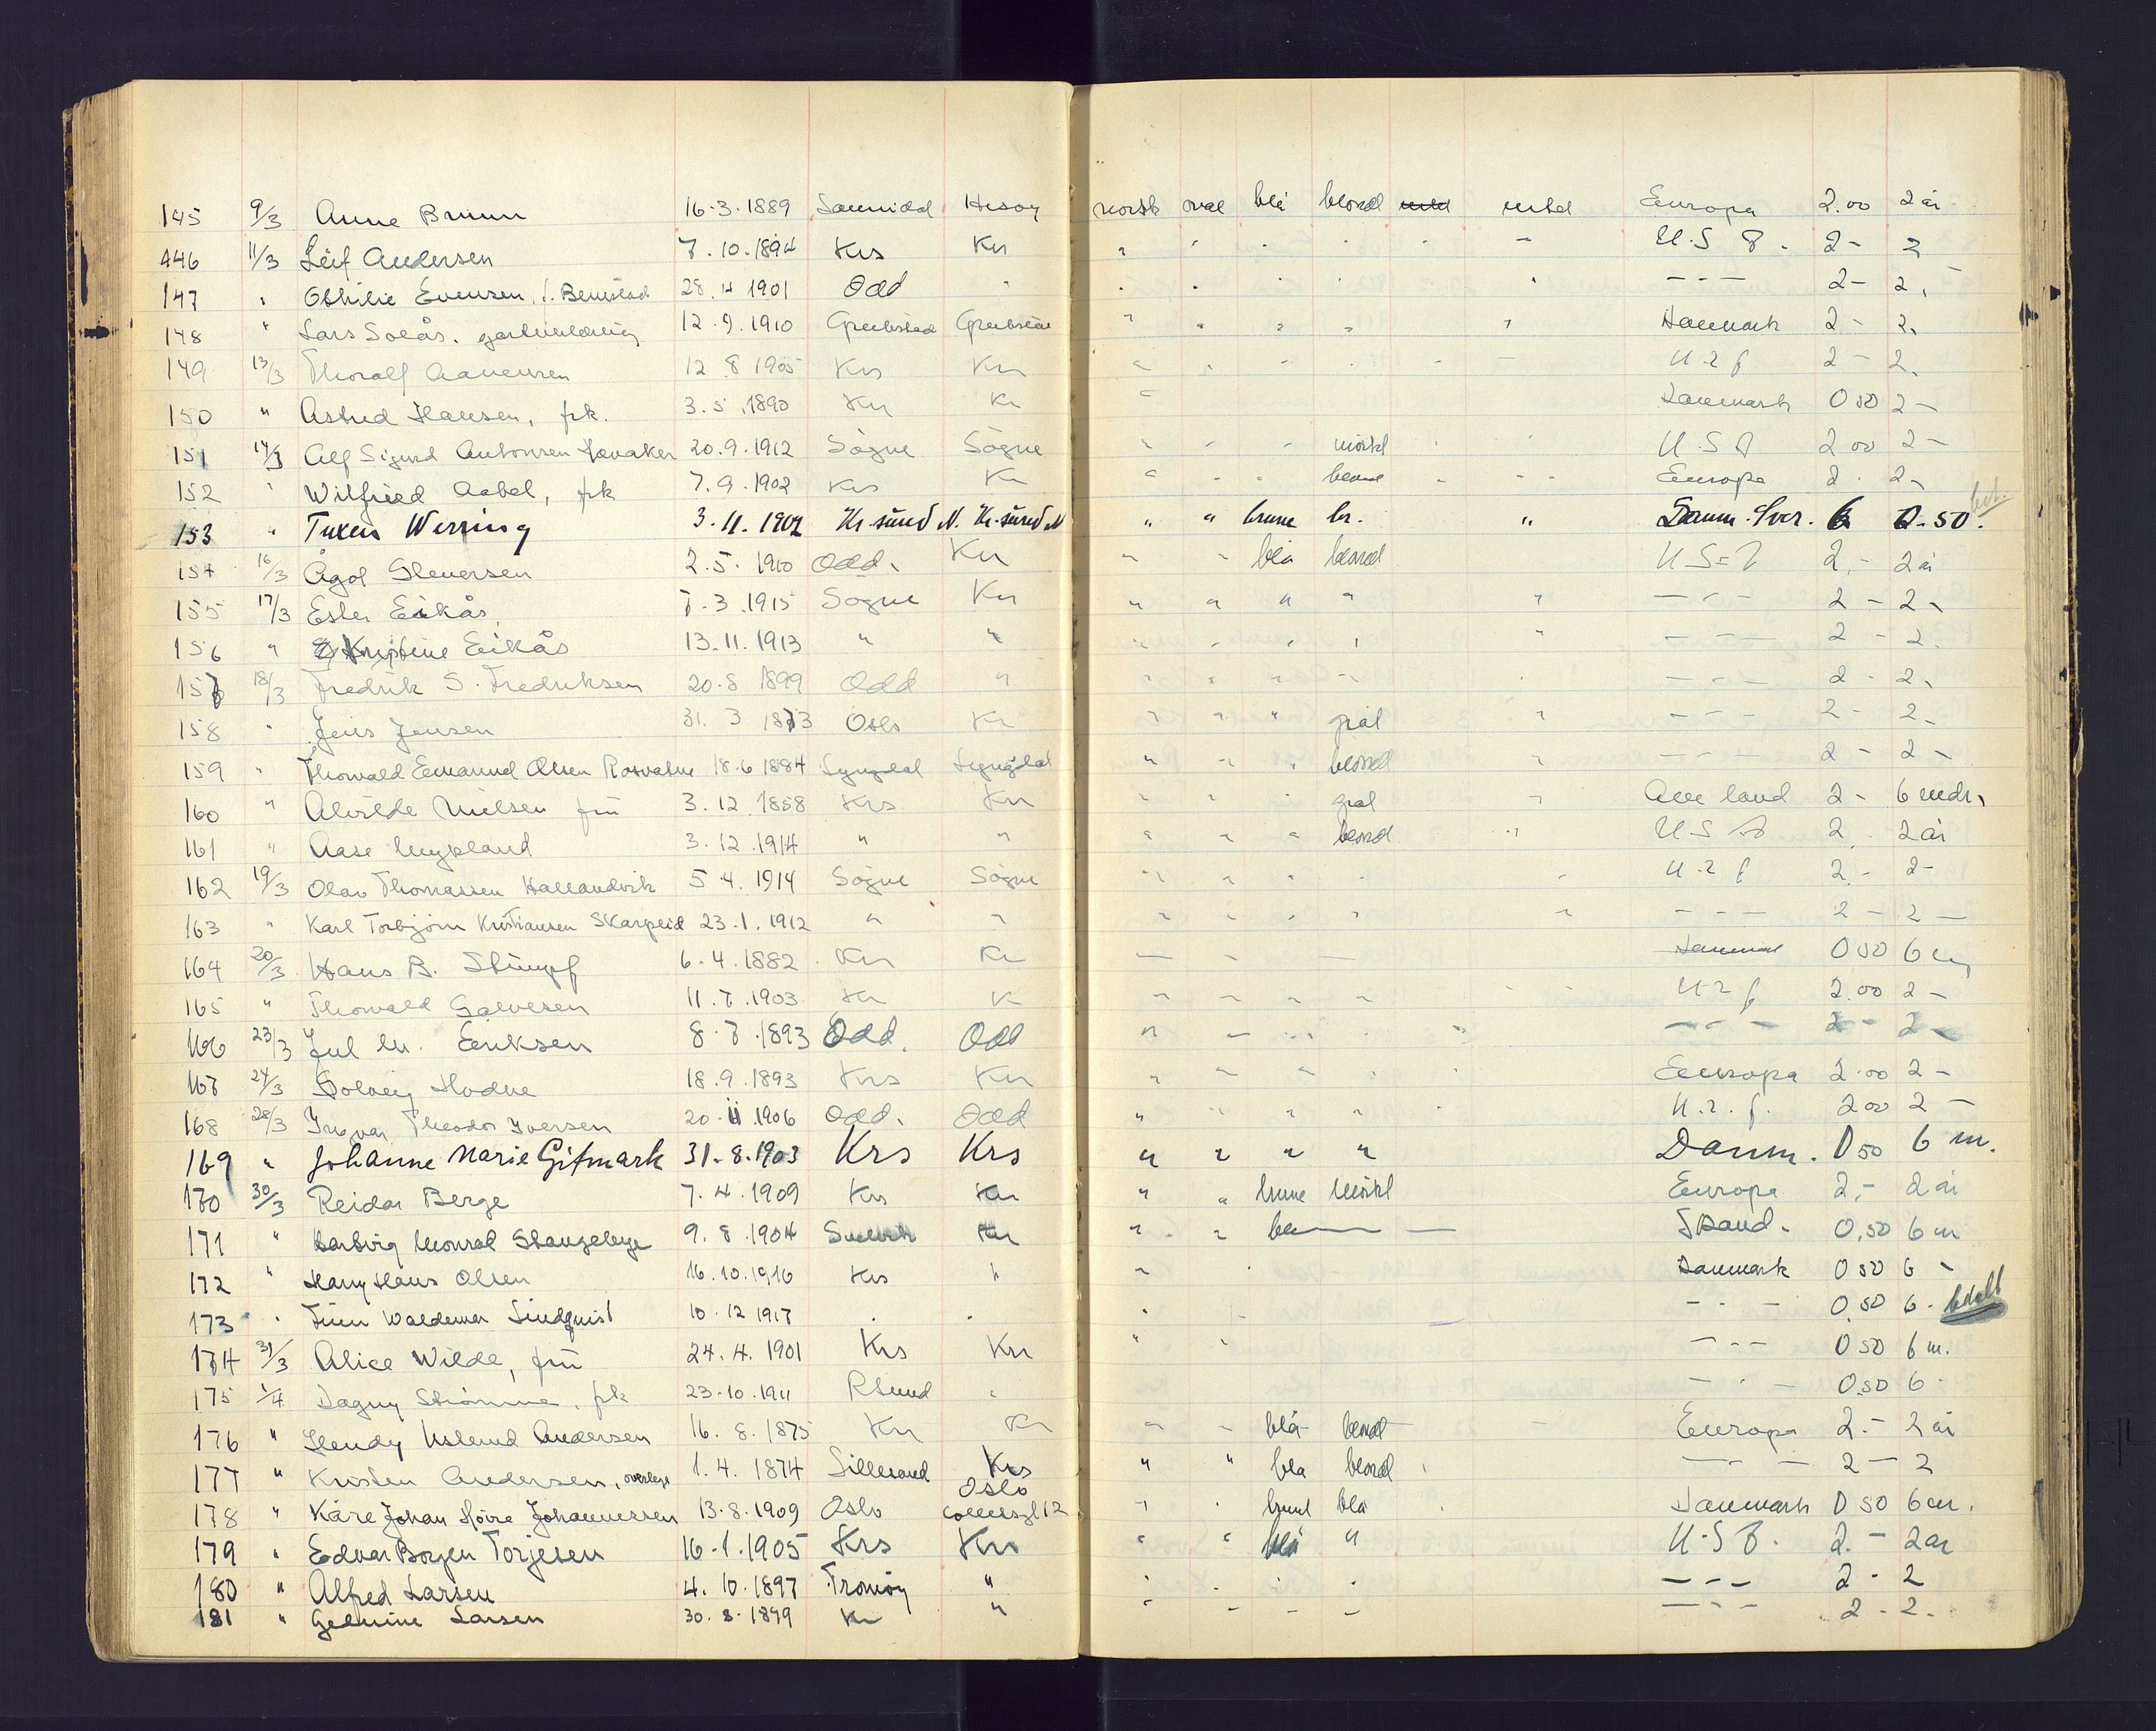 145 9/3 Anne Bruun 16.3.1889 Sannidal Hisøy norsk oval blå blond intet Europa 2.00 2 år
146 11/3 Leif Andersen 7.10.1894 Krs Kr " " " " " U.S.A. 2- 2
147 " Othilie Evensen, f. 28.4 1901 Odd " " " " " " --- 2- 2.
148 " Lars Solås. 12.9.1910 Grimstad Grimstad " " " " " Danmark 2- 2.
149 13/3 Thoralf Aanensen 12 8 1905 Krs Kr " " " " " - U.S.A 2- 2.
150 " Astrid Hansen, frk. 3.5.1890 Kr Kr " Danmark 0 50 2-
151 14/3 Alf Sigurd Antonsen 20.9.1912 Søgne Søgne " " " mørkt " " U.S.A 2 00 2-
152 " Wilfried Aabel, frk 7.9.1902 Krs Kr " " " blond " " Europa 2. 2-
153 " Tuxen Werring 3.11.1902 Kr.sund N. Kr.sund N " " brune br. " Danm. Sver. 6 0.50.
154 16/3 Ågot 2.5.1910 Odd. Kr " " blå blond U.S.A 2.- 2 år
155 17/3 Ester Eikås. 7.3.1915 Søgne Kr " " " " " --- 2-2-
156 " Kristine Eikås 13.11.1913 " " " " " " " --- 2-2.
157 18/3 Fredrik S. Fredriksen 20.8 1899 Odd " " " " " " --- 2-2.
158 " Jens Jensen 31.3 1873 Oslo Kr " " " grål " --- 2-2-
159 " Thorvald Emanuel Olsen Rosvatne 18.6 1884 Lyngdal Lyngdal " " " blond " --- 2-2-
160 " Alvilde Nielsen fru 3.12.1858 Krs Kr " " " grål " Alle land 2- 6 mdr.
161 " Aase Mykland 3.12.1914 " " " " " blond " U.S.A 2. 2 år
162 19/3 Olav Thomassen Hallandvik 5 4.1914 Søgne Søgne " " " " " U.S.A 2.- 2-
163 " Karl Torbjørn Kristiansen Skarpeid 23.1.1912 " " " " " " " --- 2-2-
164 20/3 Hans B. Stumpf 6.4.1882 Kr Kr - - - Danmark 0 50 6 m
165 " Thorvald Galvesen 11.7.1903 Kr Kr " " " " " U.S.A 2.00 2-
166 23/3 Jul M. Eriksen 8.7.1893 Odd. Odd " " " " " --- 2-2-
167 24/3 Solveig Hodne 18.9.1893 Krs Kr " " " " " Europa 2.00 2-
168 28/3 Ingvar Theodor Iversen 20.11.1906 Odd. Odd " " " " " U.S.A. 2 00 2-
169 " Johanne Marie Gitmark 31.8.1903 Krs Krs " " " " Danm. 0 50 6 m.
170 30/3 Reidar Berge 7.4.1909 Krs Kr " " brune mørkt Europa 2,- 2 år
171 " Hartvig Monrad Stangeberge 9.8.1904 Kr " " Skand. 0,50 6 m
172 " Harry Hans Olsen 16.10.1916 Krs " " " Danmark 0 50 6 -
173 " Finn Waldemar Lindquist 10.12 1917 " " " --- 0,50 6 - betalt
174 31/3 Alice Wilde, fru 24.4.1901 Krs Kr " " --- 0 50 6 m.
175 1/4 Dagny Strømme, frk 23.10.1911 Rsund " --- 0,50 6 -
176 " Hendy Andersen 16.8.1875 Kr Kr " " blå blond - Europa 2.- 2 år
177 " Kristen Andersen, overlege 1.4.1874 Lillesand Krs " " blå blond " --- 2-2
178 " Kåre Johan Høire Johannessen 13.8.1909 Oslo Oslo " " " Danmark 0 50 6 m.
179 " Edvar Borgen Torjesen 16.1.1905 Krs Krs " " blå " U.S.A. 2.- 2 år
180 " Alfred Larsen 4.10.1897 Tromøy " " " " " --- 2-2
181 " Larsen 30.8.1899 Kr " " - - - --- 2-2.